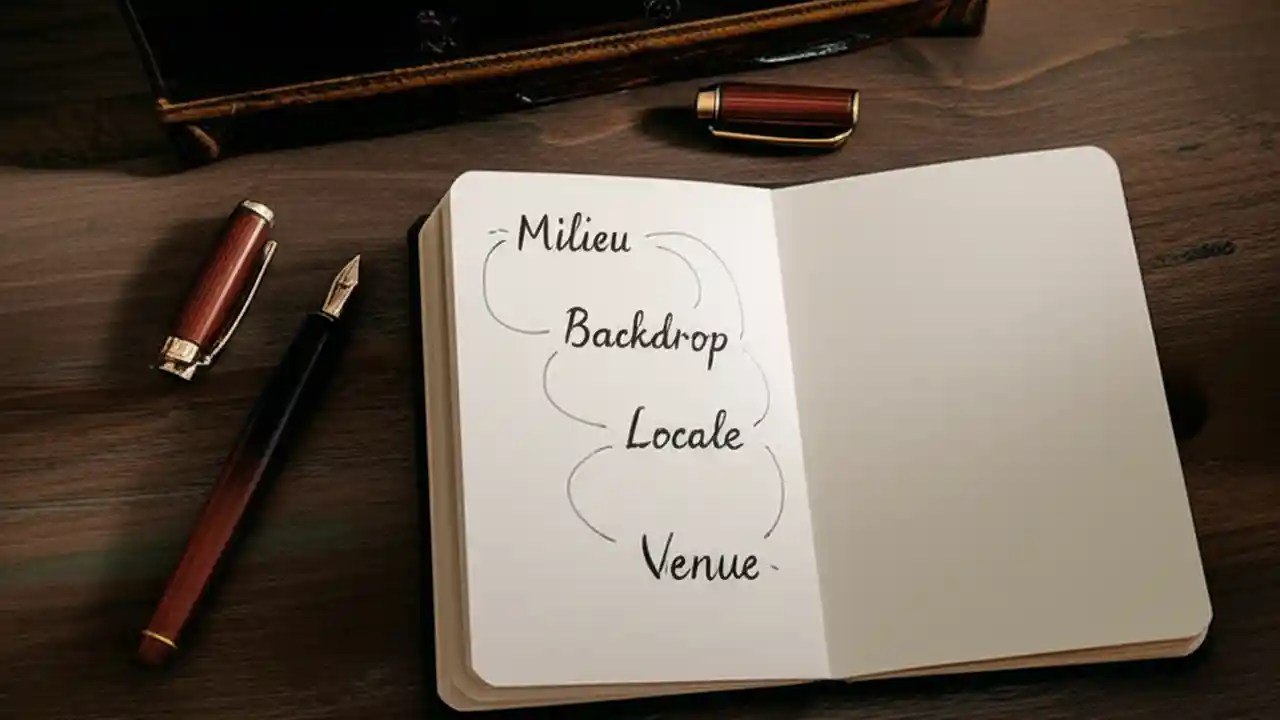 Milieu
Backdrop
Locale
Venue